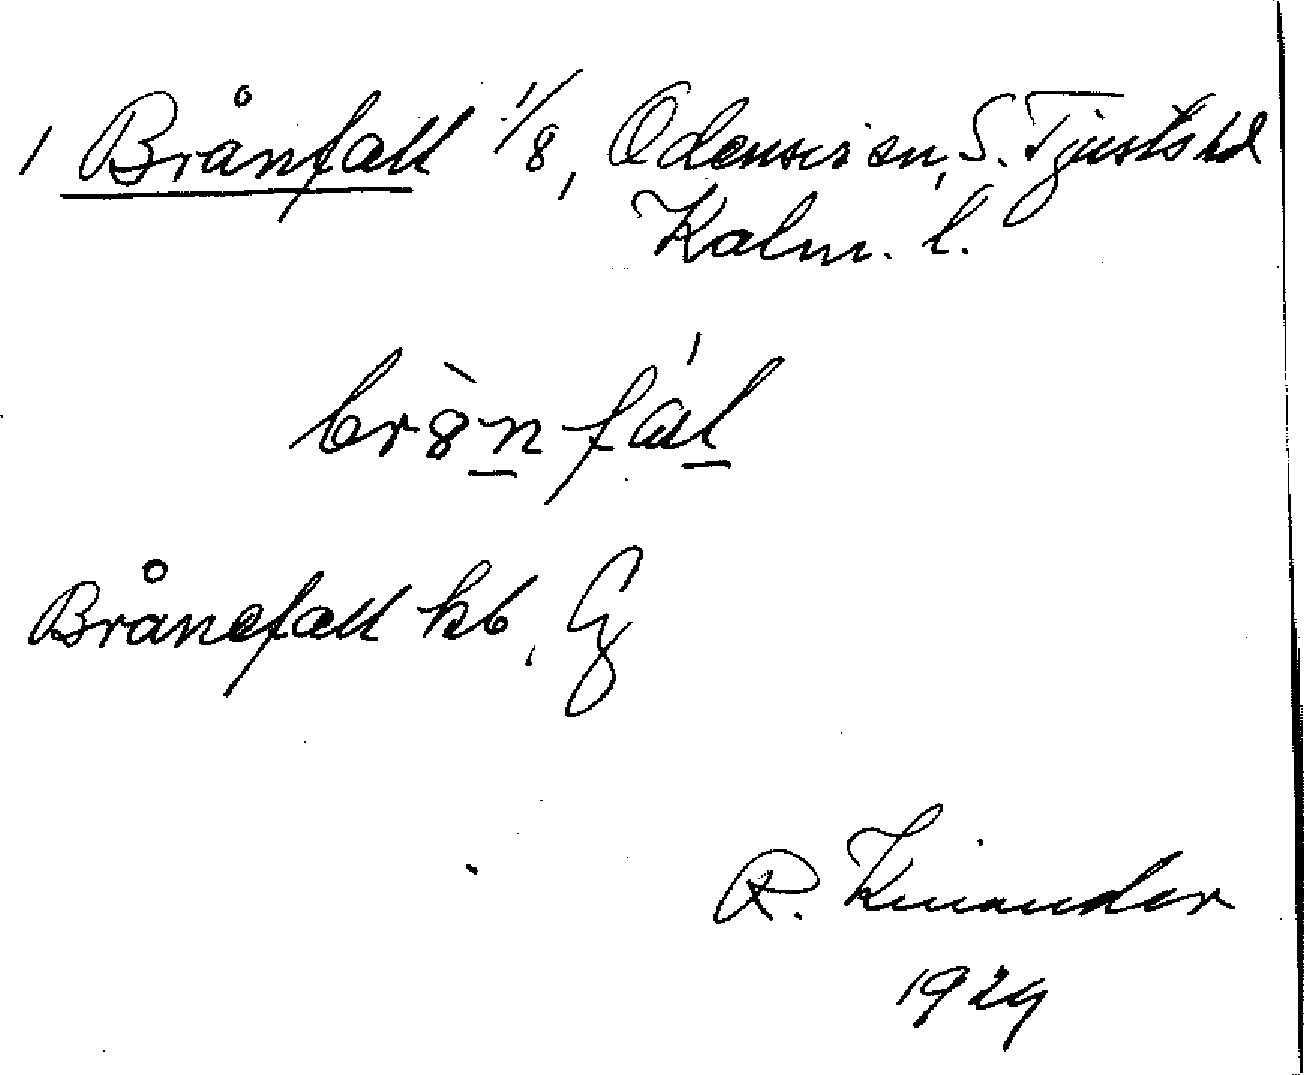 1 Brånfall 1/8, Odensvi sn, S. Tjusts hd
Kalm. l.
br8̀n fál
Brånefall kb,
R. Kinander
1929